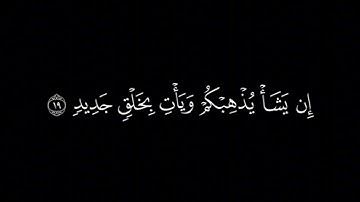 إِن يَشَأۡ يُذۡهِبۡكُمۡ وَيَأۡتِ بِخَلۡقٖ جَدِيدٖ ١٩